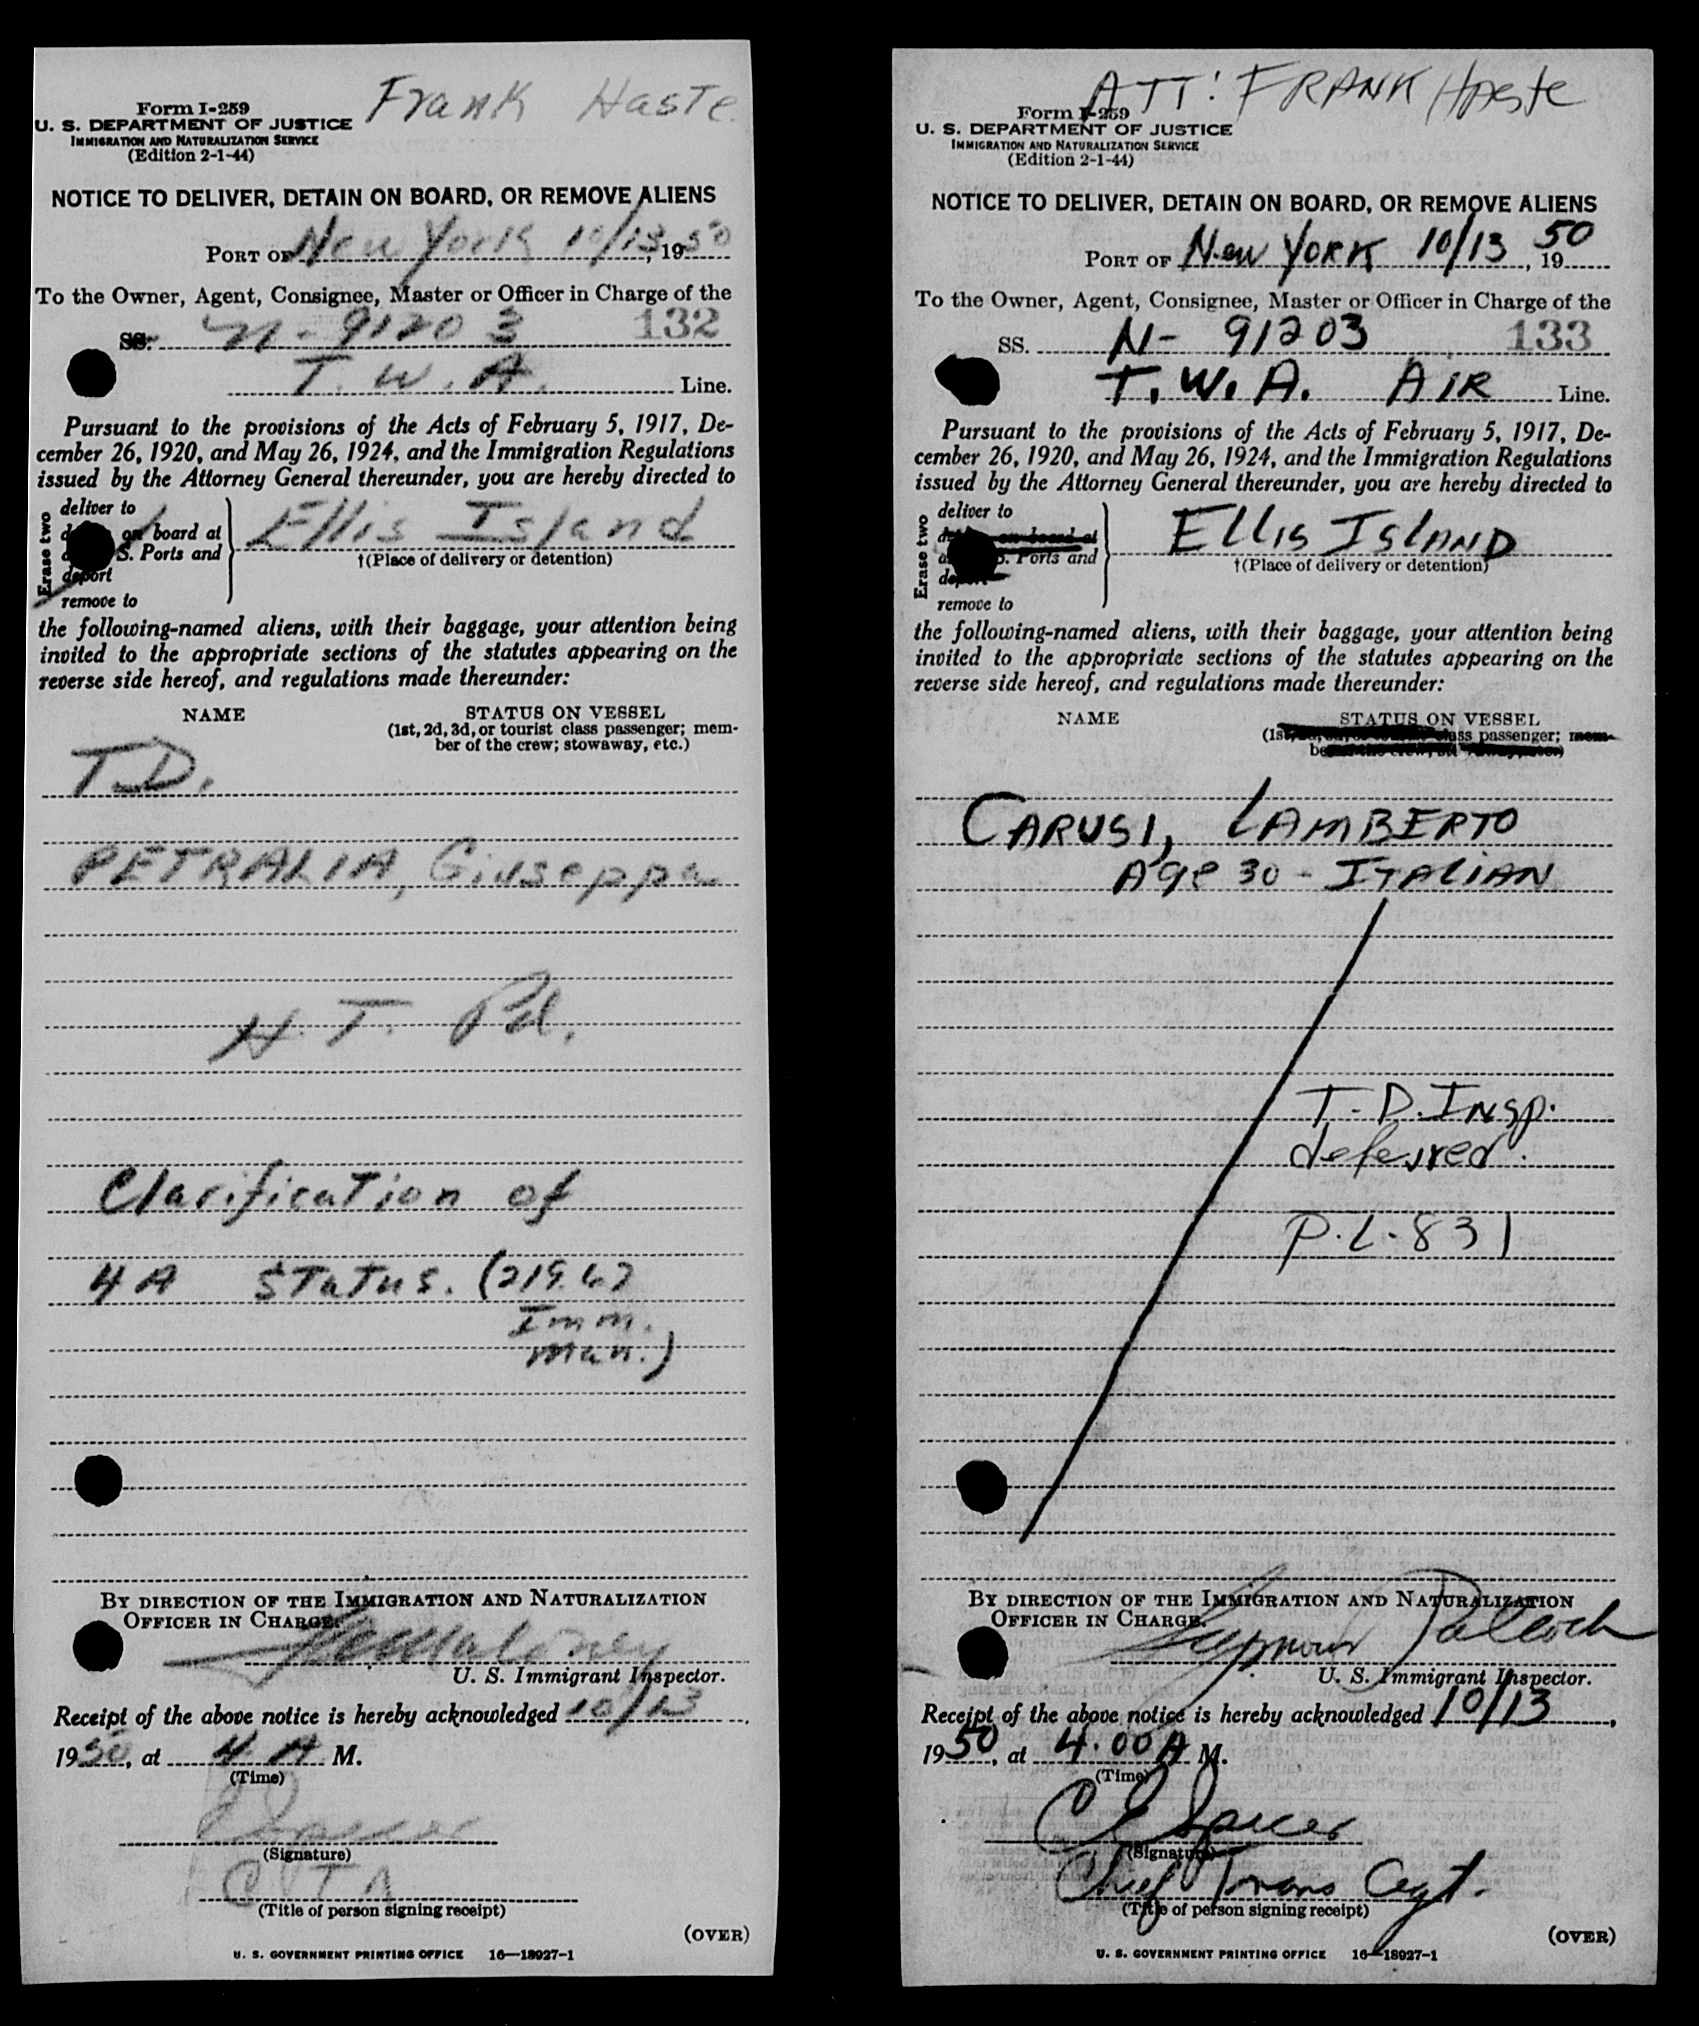 Frank Haste
Form I-259
U. S. DEPARTMENT OF JUSTICE
IMMIGRATION AND NATURALIZATION SERVICE
(Edition 2-1-44)
NOTICE TO DELIVER, DETAIN ON BOARD, OR REMOVE ALIENS
PORT OF New York 10/13, 1950
To the Owner, Agent, Consignee, Master or Officer in Charge of the
SS. N-91203 132
T. W. A. Line.
Pursuant to the provisions of the Acts of February 5, 1917, De-
cember 26, 1920, and May 26, 1924, and the Immigration Regulations
issued by the Attorney General thereunder, you are hereby directed to
Erase two
deliver to
on board at
S. Ports and
deport
remove to
Ellis Island
†(Place of delivery or detention)
the following-named aliens, with their baggage, your attention being
invited to the appropriate sections of the statutes appearing on the
reverse side hereof, and regulations made thereunder:
NAME STATUS ON VESSEL
(1st, 2d, 3d, or tourist class passenger; mem-
ber of the crew; stowaway, etc.)
T.D.
PETRALIA, Giuseppa
H. T. Pd.
Clarification of
4A Status. (219.67
Imm.
Man.)
BY DIRECTION OF THE IMMIGRATION AND NATURALIZATION
OFFICER IN CHARGE.
Maloney
U. S. Immigrant Inspector.
Receipt of the above notice is hereby acknowledged 10/13,
1950, at 4 A M.
(Time)
Spicer
(Signature)
C T A
(Title of person signing receipt)
(OVER)
U. S. GOVERNMENT PRINTING OFFICE 16—18927-1
ATT: FRANK Haste
Form I-259
U. S. DEPARTMENT OF JUSTICE
IMMIGRATION AND NATURALIZATION SERVICE
(Edition 2-1-44)
NOTICE TO DELIVER, DETAIN ON BOARD, OR REMOVE ALIENS
PORT OF New York 10/13, 1950
To the Owner, Agent, Consignee, Master or Officer in Charge of the
SS. N-91203 133
T. W. A. AIR Line.
Pursuant to the provisions of the Acts of February 5, 1917, De-
cember 26, 1920, and May 26, 1924, and the Immigration Regulations
issued by the Attorney General thereunder, you are hereby directed to
Erase two
deliver to
on board at
S. Ports and
remove to
ELLIS ISLAND
†(Place of delivery or detention)
the following-named aliens, with their baggage, your attention being
invited to the appropriate sections of the statutes appearing on the
reverse side hereof, and regulations made thereunder:
NAME STATUS ON VESSEL
(1st, class passenger; mem-
CARUSI, LAMBERTO
Age 30 - ITALIAN
T.D. Insp.
deferred.
P.L-831
BY DIRECTION OF THE IMMIGRATION AND NATURALIZATION
OFFICER IN CHARGE.
Seymour
U. S. Immigrant Inspector.
Receipt of the above notice is hereby acknowledged 10/13,
1950, at 4.00 A M.
(Time)
C E Spicer
(Signature)
Chief Trans Agt.
(Title of person signing receipt)
(OVER)
U. S. GOVERNMENT PRINTING OFFICE 16—18927-1